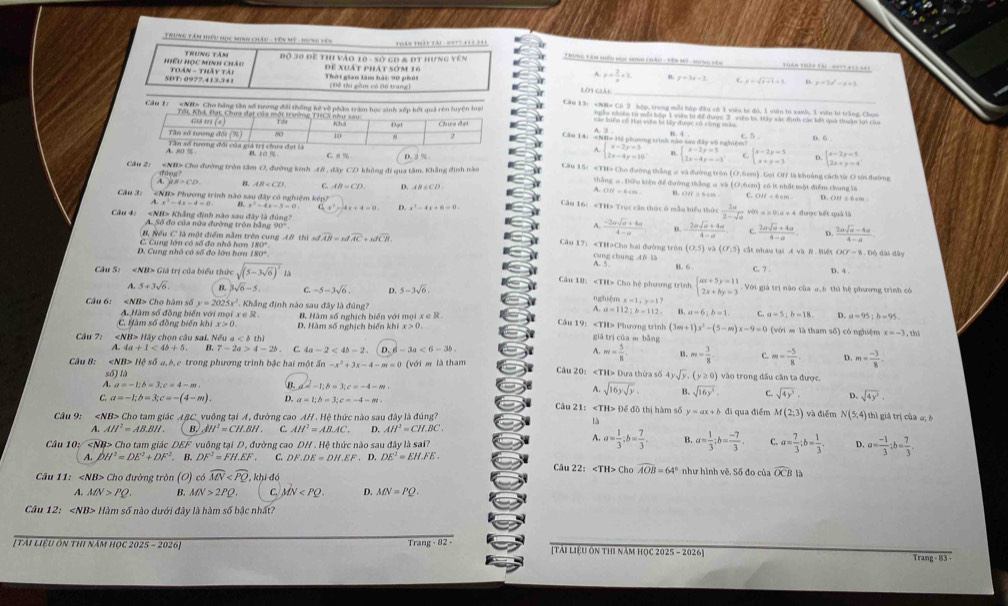 TRUNG TÂM HIẾU HỌC MINH CHÂU - YÊN MỸ - HƯNG YÊN
TOÁN THẦY TÀI - 0977.413.341
TRUNG TÂM
HIẾU HỌC MINH CHÂU
TOÁN - THẦY TÀI
SĐT: 0977.413.341
BỘ 30 ĐỀ THI VÀO 10 - SỞ GD & ĐT HƯNG YÊN
ĐỀ XUẤT PHÁT SỚM 16
Thời gian làm bài: 90 phút
(Đề thi gồm có 06 trang)
Câu 1: <NB> Cho bảng tần số tương đối thống kê về phần trăm học sinh xếp kết quả rèn luyện loại
Tốt, Khá, Đạt, Chưa đạt của một trường THCS như sau:
Giá trị (x) Tốt Khá Đạt Chưa đạt
Tần số tương đối (%) 80 10 8 2
Tần số tương đối của giá trị chưa đạt là
A. 80 %. B. 10 %. C. 8 %. D. 2 %.
Câu 2: <NB> Cho đường tròn tâm O, đường kính AB, dây CD không đi qua tâm. Khẳng định nào
đúng?
A. AB > CD. B. AB < CD. C. AB = CD. D. AB ≤ CD.
Câu 3: <NB> Phương trình nào sau đây có nghiệm kép?
A. x² - 4x - 4 = 0. B. x² - 4x - 5 = 0. C. x² - 4x + 4 = 0. D. x² - 4x + 6 = 0.
Câu 4: <NB> Khẳng định nào sau đây là đúng?
A. Số đo của nửa đường tròn bằng 90°.
B. Nếu C là một điểm nằm trên cung AB thì sđAB = sđAC + sđCB.
C. Cung lớn có số đo nhỏ hơn 180°.
D. Cung nhỏ có số đo lớn hơn 180°.
Câu 5: <NB> Giá trị của biểu thức √(5-3√6)² là
A. 5+3√6. B. 3√6-5. C. -5-3√6. D. 5-3√6.
Câu 6: <NB> Cho hàm số y = 2025x². Khẳng định nào sau đây là đúng?
A. Hàm số đồng biến với mọi x ∈ R. B. Hàm số nghịch biến với mọi x ∈ R.
C. Hàm số đồng biến khi x > 0. D. Hàm số nghịch biến khi x > 0.
Câu 7: <NB> Hãy chọn câu sai. Nếu a < b thì
A. 4a+1 < 4b+5. B. 7-2a > 4-2b. C. 4a-2 < 4b-2. D. 6-3a < 6-3b.
Câu 8: <NB> Hệ số a, b, c trong phương trình bậc hai một ẩn -x²+3x-4-m=0 (với m là tham
số) là
A. a=-1; b=3; c=4-m. B. a=-1; b=3; c=-4-m.
C. a=-1; b=3; c=-(4-m). D. a=1; b=3; c=-4-m.
Câu 9: <NB> Cho tam giác ABC vuông tại A, đường cao AH. Hệ thức nào sau đây là đúng?
A. AH² = AB.BH. B. AH² = CH.BH. C. AH² = AB.AC. D. AH² = CH.BC.
Câu 10: <NB> Cho tam giác DEF vuông tại D, đường cao DH. Hệ thức nào sau đây là sai?
A. DH² = DE² + DF². B. DF² = FH.EF. C. DF.DE = DH.EF. D. DE² = EH.FE.
Câu 11: <NB> Cho đường tròn (O) có MN < PQ, khi đó
A. MN > PQ. B. MN > 2PQ. C. MN < PQ. D. MN = PQ.
Câu 12: <NB> Hàm số nào dưới đây là hàm số bậc nhất?
[TÀI LIỆU ÔN THI NĂM HỌC 2025 - 2026] Trang - 82 -
B. y = 3x - 2.
LỜI GIẢI
A. 3. B. 4. C. 5. D. 6
Câu 14: <NB> Hệ phương trình nào sau đây vô nghiệm?
A. {x-2y=5 2x-4y=10. B. {x-2y=5 2x-4y=-3. C. {x-2y=5 x+y=3. D. {x-2y=5 2x+y=4.
Câu 15: <TH> Cho đường thẳng a và đường tròn (O;6cm). Gọi OH là khoảng cách từ O tới đường
thẳng a. Điều kiện để đường thẳng a và (O;6cm) có ít nhất một điểm chung là
A. OH = 6cm. B. OH ≥ 6cm. C. OH < 6cm. D. OH ≤ 6cm.
Câu 16: <TH> Trục căn thức ở mẫu biểu thức 2a/(2-√a) với a ≥ 0; a ≠ 4 được kết quả là
A. (-2a√a+4a)/(4-a). B. (-2a√a+4a)/(4-a). C. (2a√a+4a)/(4-a). D. (2a√a-4a)/(4-a).
Câu 17: <TH>Cho hai đường tròn (O;5) và (O';5) cắt nhau tại A và B. Biết OO' = 8. Độ dài dây
cung chung AB là
A. 5. B. 6. C. 7. D. 4.
Câu 18: <TH> Cho hệ phương trình {ax+5y=11 2x+by=3. Với giá trị nào của a, b thì hệ phương trình có
nghiệm x=1, y=1?
A. a=112; b=112. B. a=6; b=1. C. a=5; b=18. D. a=95; b=95.
Câu 19: <TH> Phương trình (3m+1)x² - (5-m)x - 9 = 0 (với m là tham số) có nghiệm x = -3, thì
giá trị của m bằng
A. m = 5/8. B. m = 3/8. C. m = -5/8. D. m = -3/8.
Câu 20: <TH> Đưa thừa số 4y√y, (y ≥ 0) vào trong dấu căn ta được.
A. √16y√y. B. √16y³. C. √4y³. D. √4y².
Câu 21: <TH> Để đồ thị hàm số y = ax + b đi qua điểm M(2;3) và điểm N(5;4) thì giá trị của a; b
là
A. a=1/3; b=7/3. B. a=1/3; b=-7/3. C. a=7/3; b=1/3. D. a=-1/3; b=7/3.
Câu 22: <TH> Cho AOB = 64° như hình vẽ. Số đo của OCB là
[TÀI LIỆU ÔN THI NĂM HỌC 2025 - 2026] Trang - 83 -